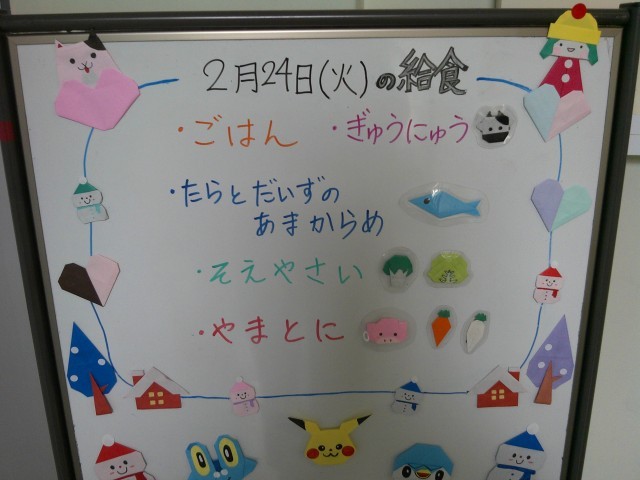 2月24日(火)の給食
・ごはん ・ぎゅうにゅう
・たらとだいずの
あまからめ
・そえやさい
・やまとに